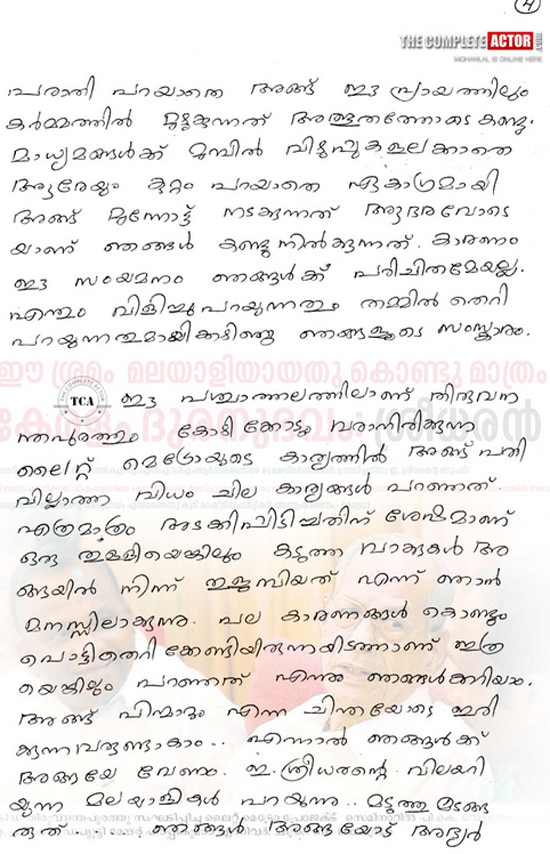 4
THE COMPLETE ACTOR
MOHANLAL IS ONLINE HERE
പരാതി പറയാതെ അങ്ങ് ഈ പ്രായത്തിലും
കർമ്മത്തിൽ മുഴുകുന്നത് അത്ഭുതത്തോടെ കണ്ടു.
മാധ്യമങ്ങൾക്ക് മുമ്പിൽ വിഴുപ്പുകളലക്കാതെ
ആരേയും കുറ്റം പറയാതെ ഏകാഗ്രമായി
അങ്ങ് മുന്നോട്ട് നടക്കുന്നത് ആദരവോടെ
യാണ് ഞങ്ങൾ കണ്ടുനിൽക്കുന്നത്. കാരണം
ഈ സംയമനം ഞങ്ങൾക്ക് പരിചിതമേയല്ല.
എന്തും വിളിച്ചുപറയുന്നതും തമ്മിൽ തെറി
പറയുന്നതുമായിക്കഴിഞ്ഞു ഞങ്ങളുടെ സംസ്കാരം.
ഈ ശ്രദ്ധ മലയാളിയായതു കൊണ്ടു മാത്രം
TCA ഈ പശ്ചാത്തലത്തിലാണ് തിരുവന
ന്തപുരത്തും കോഴിക്കോടും വരാനിരിക്കുന്ന
ലൈറ്റ് മെട്രോയുടെ കാര്യത്തിൽ അങ്ങ് പതി
വില്ലാത്ത വിധം ചില കാര്യങ്ങൾ പറഞ്ഞത്.
എത്രമാത്രം അടക്കിപിടിച്ചതിന് ശേഷമാണ്
ഒരു തുള്ളിയെങ്കിലും കടുത്ത വാക്കുകൾ അ
ങ്ങയിൽ നിന്ന് തുളുമ്പിയത് എന്ന് ഞാൻ
മനസ്സിലാക്കുന്നു. പല കാരണങ്ങൾ കൊണ്ടും
പൊട്ടിതെറിക്കേണ്ടിയിരുന്നയിടത്താണ് ഇത്ര
യെങ്കിലും പറഞ്ഞത് എന്നു ഞങ്ങൾക്കറിയാം.
അങ്ങ് പിന്മാറും എന്ന ചിന്തയോടെ ഇരി
ക്കുന്നവരുണ്ടാകാം.. എന്നാൽ ഞങ്ങൾക്ക്
അങ്ങയേ വേണം. ഇ. ശ്രീധരന്റെ വിലയറി
യുന്ന മലയാളികൾ പറയുന്നു.. മടുത്തു മടങ്ങ
രുത്..... ഞങ്ങൾ അങ്ങയോട് അത്ര്യൻ